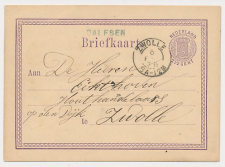 DALFSEN
Briefkaart
ZWOLLE
NEDERLAND
Aan De Heeren
Eekhoven
Houthandelaars
op den Dijk
te Zwolle